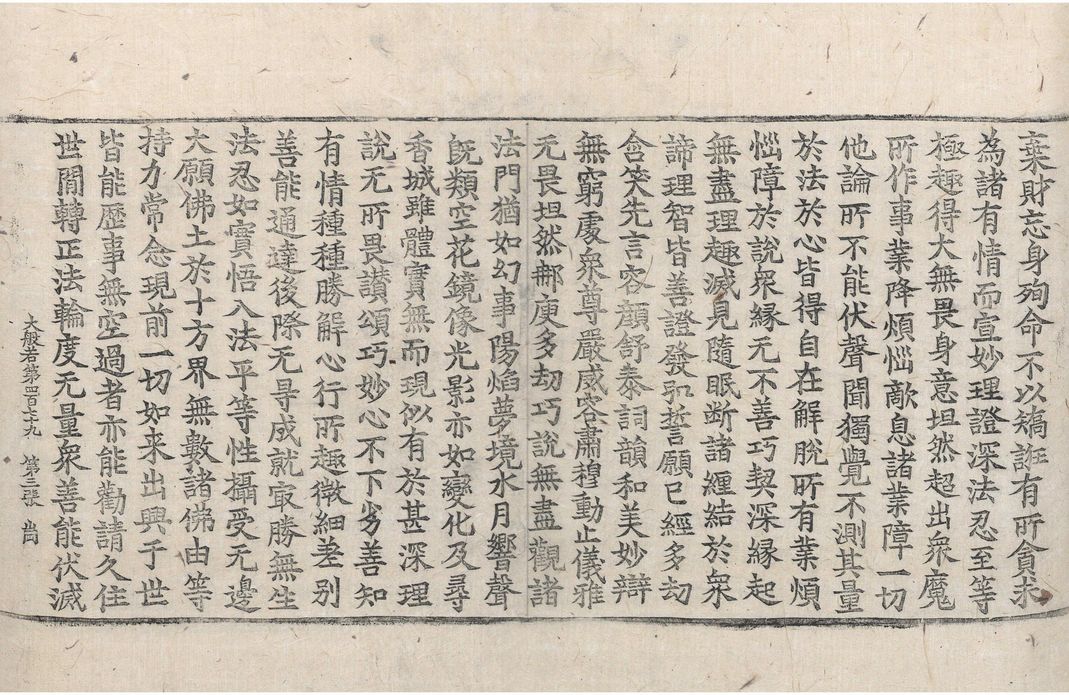 棄財忘身殉命不以矯誑有所貪求
為諸有情而宣妙理證深法忍至等
極趣得大無畏身意坦然超出衆魔
所作事業降煩惱敵息諸業障一切
他論所不能伏聲聞獨覺不測其量
於法於心皆得自在解脫所有業煩
惱障於說衆緣无不善巧契深緣起
無盡理趣滅見隨眠断諸纏結於衆
諦理智皆善證發弘誓願已經多劫
含笑先言容顔舒泰詞韻和美妙辯
無窮處衆尊嚴威容肅穆動止儀雅
无畏坦然那庾多劫巧說無盡觀諸
法門猶如幻事陽焰夢境水月響聲
旣類空花鏡像光影亦如變化及尋
香城雖體實無而現似有於甚深理
說无所畏讃頌巧妙心不下劣善知
有情種種勝解心行所趣微細差別
善能通達後際无㝵成就㝡勝無生
法忍如實悟入法平等性攝受无邊
大願佛土於十方界無數諸佛由等
持力常念現前一切如来出興于世
皆能歷事無空過者亦能勸請久住
世間轉正法輪度无量衆善能伏滅
大般若第四百七十九 第三張 崗